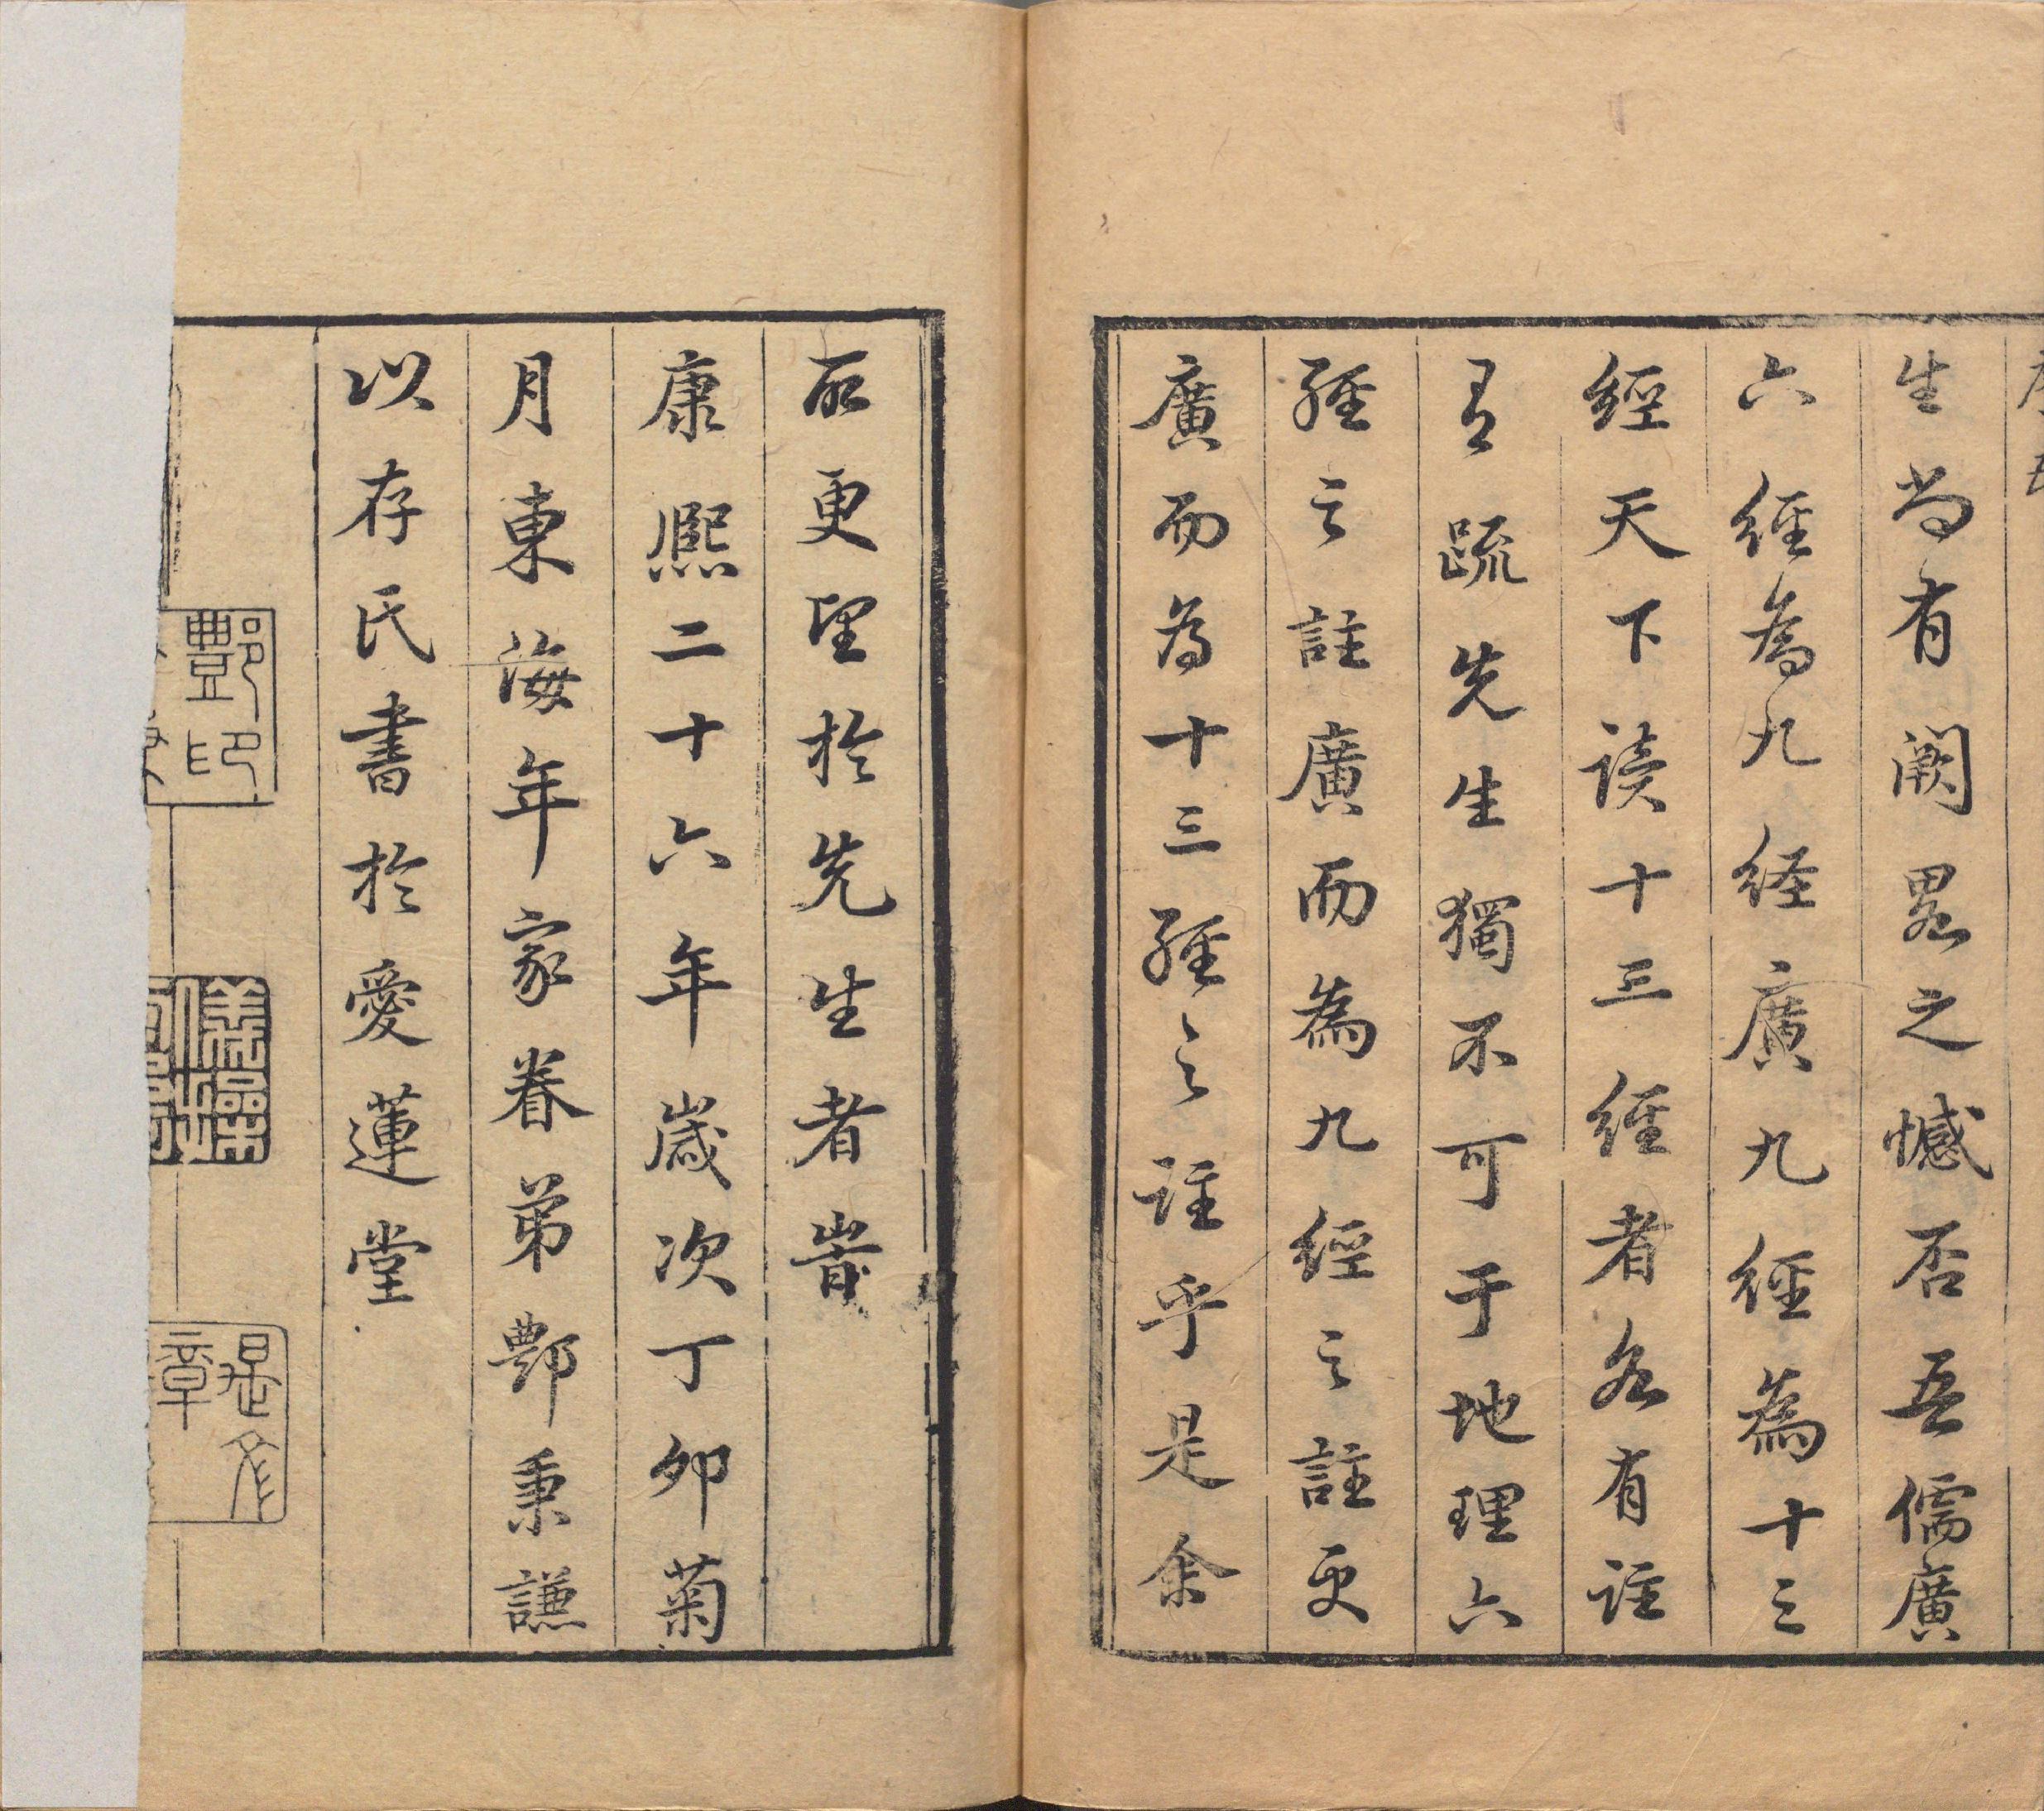 生尚有闕畧之憾否吾儒廣
六經為九経廣九經為十三
經天下读十三經者各有註
有疏先生獨不可于地理六
經之註廣而為九經之註更
廣而為十三經之註乎是余
所更望於先生者旹
康熈二十六年歲次丁卯菊
月東海年家眷弟酆秉謙
以存氏書於愛蓮堂
酆印
章